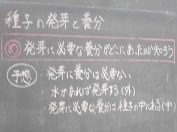 種子の発芽と養分
め 発芽に必要な養分がどこにあったか知ろう
予想 ・発芽に養分は必要ない
・水があれば発芽する(外)
・発芽に必要な養分は種子の中にある(中)